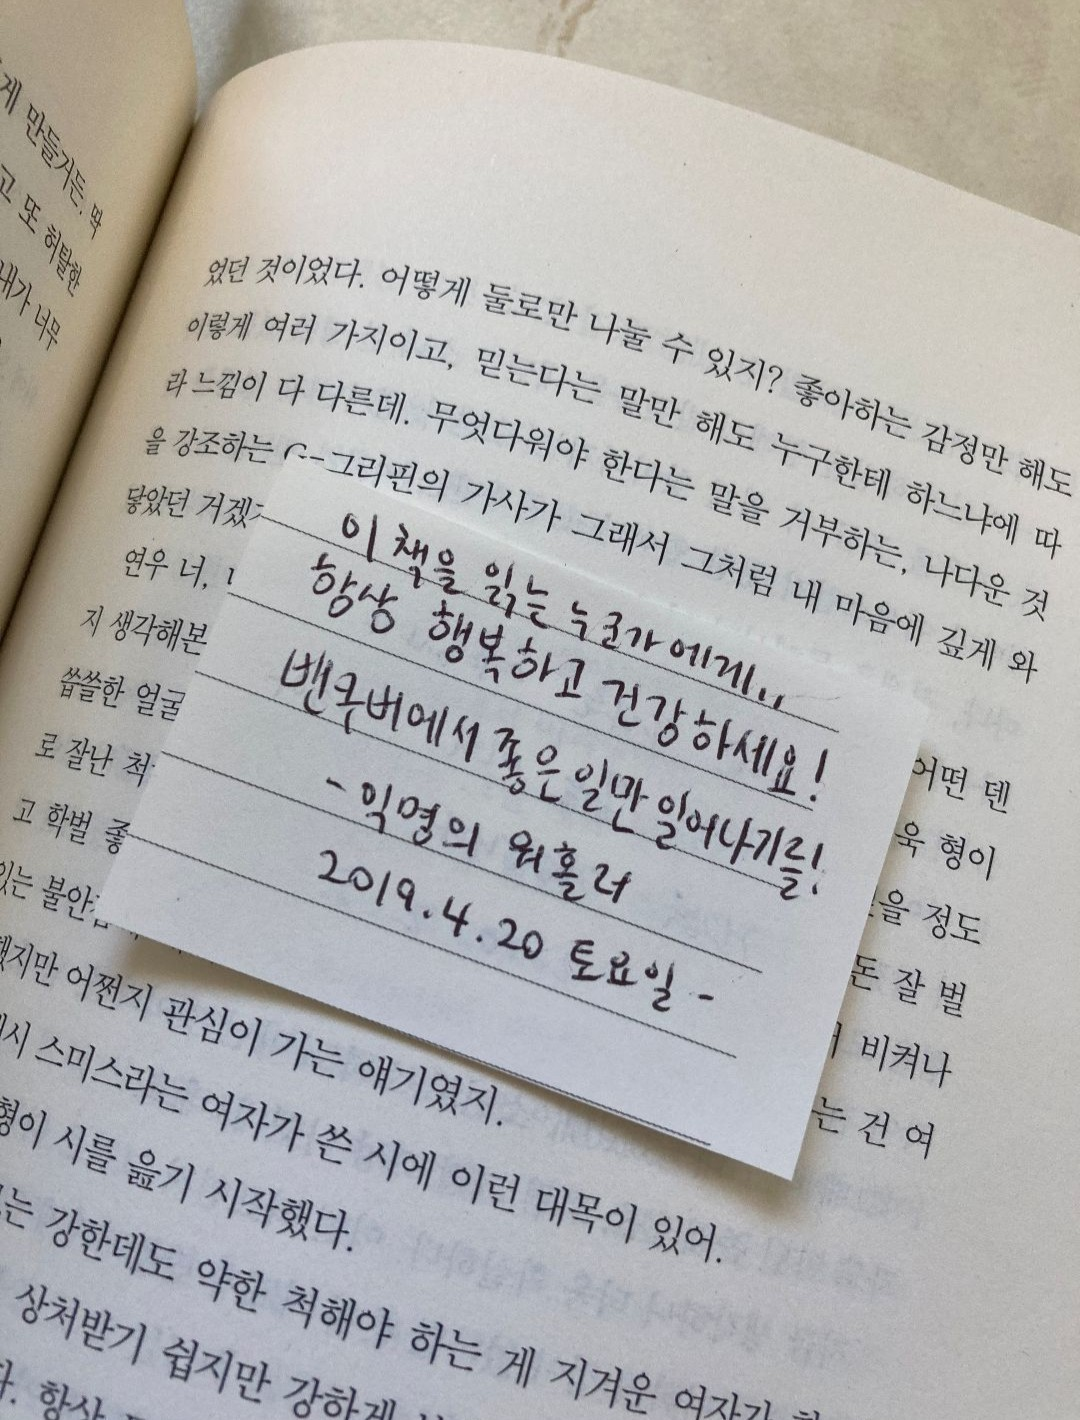 게 만들거든. 딱
고 또 허탈한
내가 너무
었던 것이었다. 어떻게 둘로만 나눌 수 있지? 좋아하는 감정만 해도
이렇게 여러 가지이고, 믿는다는 말만 해도 누구한테 하느냐에 따
라 느낌이 다 다른데. 무엇다워야 한다는 말을 거부하는, 나다운 것
을 강조하는 G-그리핀의 가사가 그래서 그처럼 내 마음에 깊게 와
닿았던
연우 너,
지 생각해본
씁쓸한 얼굴
로 잘난 척
고 학벌
있는
어쩐지 관심이 가는 얘기였지.
스미스라는 여자가 쓴 시에 이런 대목이 있어.
형이 시를 읊기 시작했다.
강한데도 약한 척해야 하는 게 지겨운 여자가
상처받기 쉽지만 강하게
항상
이 책을 읽는 누군가에게..
항상 행복하고 건강하세요!
밴쿠버에서 좋은 일만 일어나기를!
- 익명의 워홀러
2019.4.20 토요일 -
어떤 덴
욱 형이
정도
돈 잘 벌
비켜나
는 건 여